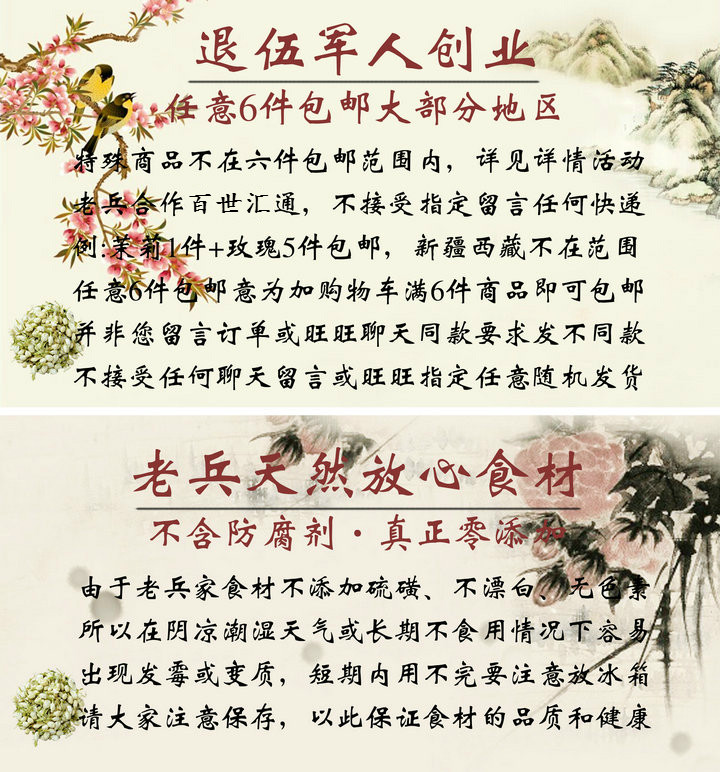 退伍军人创业
任意6件包邮大部分地区
特殊商品不在六件包邮范围内，详见详情活动
老兵合作百世汇通，不接受指定留言任何快递
例:茉莉1件+玫瑰5件包邮，新疆西藏不在范围
任意6件包邮意为加购物车满6件商品即可包邮
并非您留言订单或旺旺聊天同款要求发不同款
不接受任何聊天留言或旺旺指定任意随机发货
老兵天然放心食材
不含防腐剂·真正零添加
由于老兵家食材不添加硫磺、不漂白、无色素
所以在阴凉潮湿天气或长期不食用情况下容易
出现发霉或变质，短期内用不完要注意放冰箱
请大家注意保存，以此保证食材的品质和健康